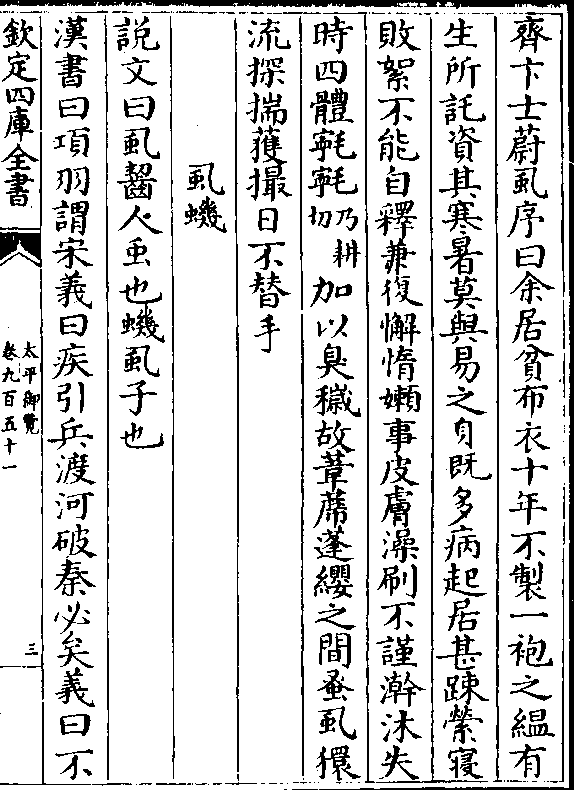 齊卞士蔚虱序曰余居貧布衣十年不製一袍之緼有
生所託資其寒暑莫與易之自既多病起居甚踈縈寝
敗絮不能自釋兼復懈惰嬾事皮膚澡刷不謹澣沐失
時四體𣰦𣰦乃耕切加以臭穢故葦蓆蓬纓之間蚤虱猥
流探揣獲撮日不替手
虱蟣
説文曰虱齧人䖝也蟣虱子也
漢書曰項羽謂宋義曰疾引兵渡河破秦必矣義曰不
欽定四庫全書
太平御覽
卷九百五十一
三